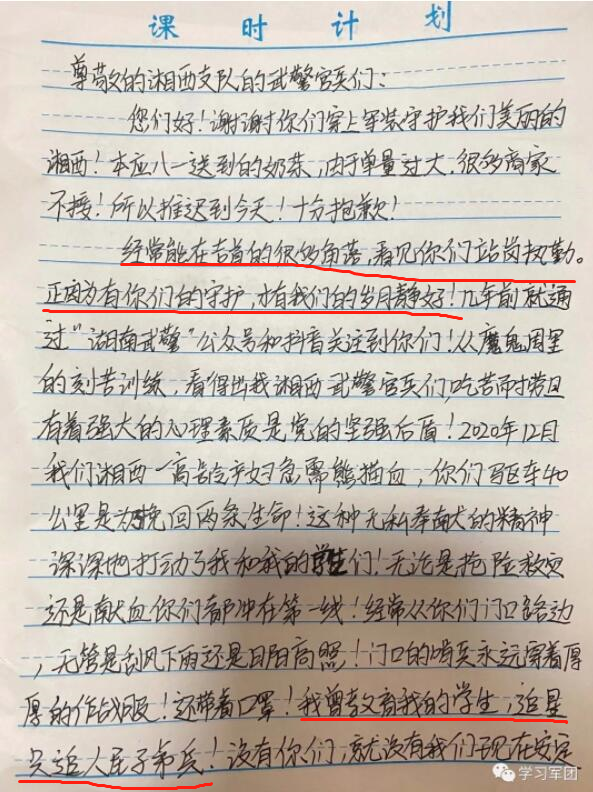 课时计划
尊敬的湘西支队的武警官兵们：
您们好！谢谢你们穿上军装守护我们美丽的
湘西！本应八一送到的奶茶，由于单量过大，很多商家
不接！所以推迟到今天！十分抱歉！
经常能在吉首的很多角落，看见你们站岗执勤。
正因为有你们的守护，才有我们的岁月静好！几年前就通
过“湖南武警”公众号和抖音关注到你们！从魔鬼周里
的刻苦训练，看得出我湘西武警官兵们，吃苦耐劳且
有着强大的心理素质是党的坚强后盾！2020年12月
我们湘西一高龄产妇急需熊猫血，你们驱车40
公里是为挽回两条生命！这种无私奉献的精神
深深地打动了我和我的学生们！无论是抢险救灾
还是献血你们都冲在第一线！经常从你们门口路边
，无管是刮风下雨还是日阳高照！门口的哨兵永远穿着厚
厚的作战服！还带着口罩！我曾教育我的学生，追星
只追人民子弟兵！没有你们，就没有我们现在安定
学习军团